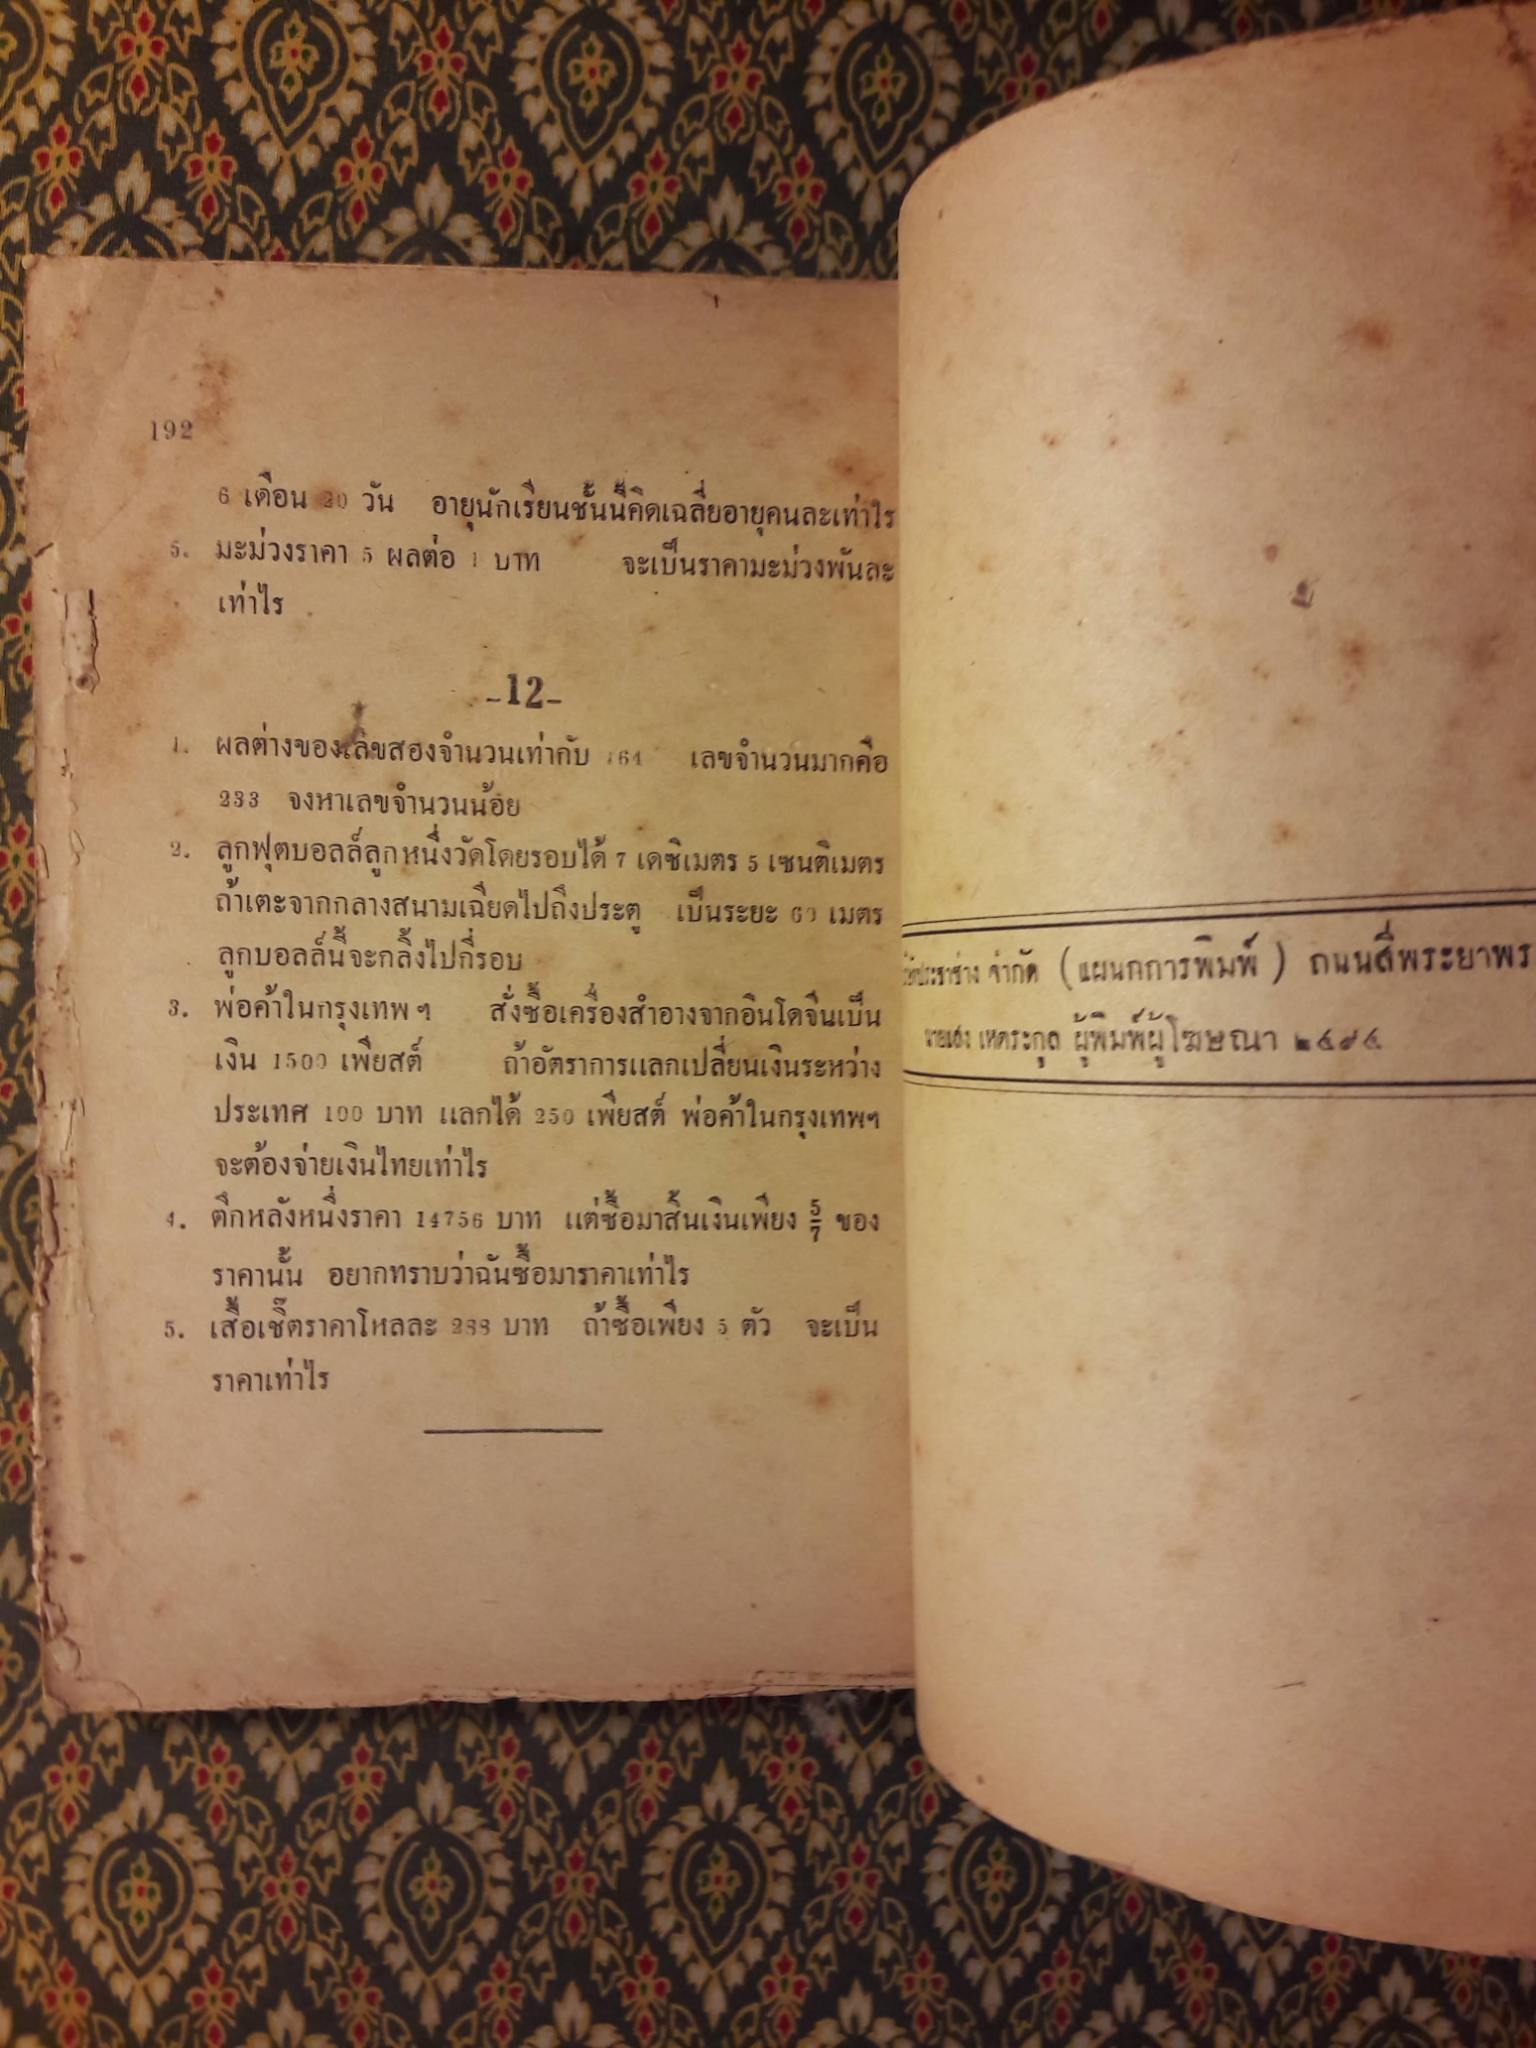 192
6 เดือน 20 วัน อายุนักเรียนชั้นนี้คิดเฉลี่ยอายุคนละเท่าไร
5. มะม่วงราคา 5 ผลต่อ 1 บาท จะเป็นราคามะม่วงพันละ
เท่าไร
-12-
1. ผลต่างของเลขสองจำนวนเท่ากับ 164 เลขจำนวนมากคือ
233 จงหาเลขจำนวนน้อย
2. ลูกฟุตบอลล์ลูกหนึ่งวัดโดยรอบได้ 7 เดซิเมตร 5 เซนติเมตร
ถ้าเตะจากกลางสนามเฉียดไปถึงประตู เป็นระยะ 60 เมตร
ลูกบอลล์นี้จะกลิ้งไปกี่รอบ
3. พ่อค้าในกรุงเทพฯ สั่งซื้อเครื่องสำอางจากอินโดจีนเป็น
เงิน 1500 เพียสต์ ถ้าอัตราการแลกเปลี่ยนเงินระหว่าง
ประเทศ 100 บาท แลกได้ 250 เพียสต์ พ่อค้าในกรุงเทพฯ
จะต้องจ่ายเงินไทยเท่าไร
4. ตึกหลังหนึ่งราคา 14756 บาท แต่ซื้อมาสิ้นเงินเพียง 5/7 ของ
ราคานั้น อยากทราบว่าฉันซื้อมาราคาเท่าไร
5. เสื้อเชิ๊ตราคาโหลละ 288 บาท ถ้าซื้อเพียง 5 ตัว จะเป็น
ราคาเท่าไร
จำกัด (แผนกการพิมพ์) ถนนสี่พระยาพร
เหตระกูล ผู้พิมพ์ผู้โฆษณา ๒๔๙๔